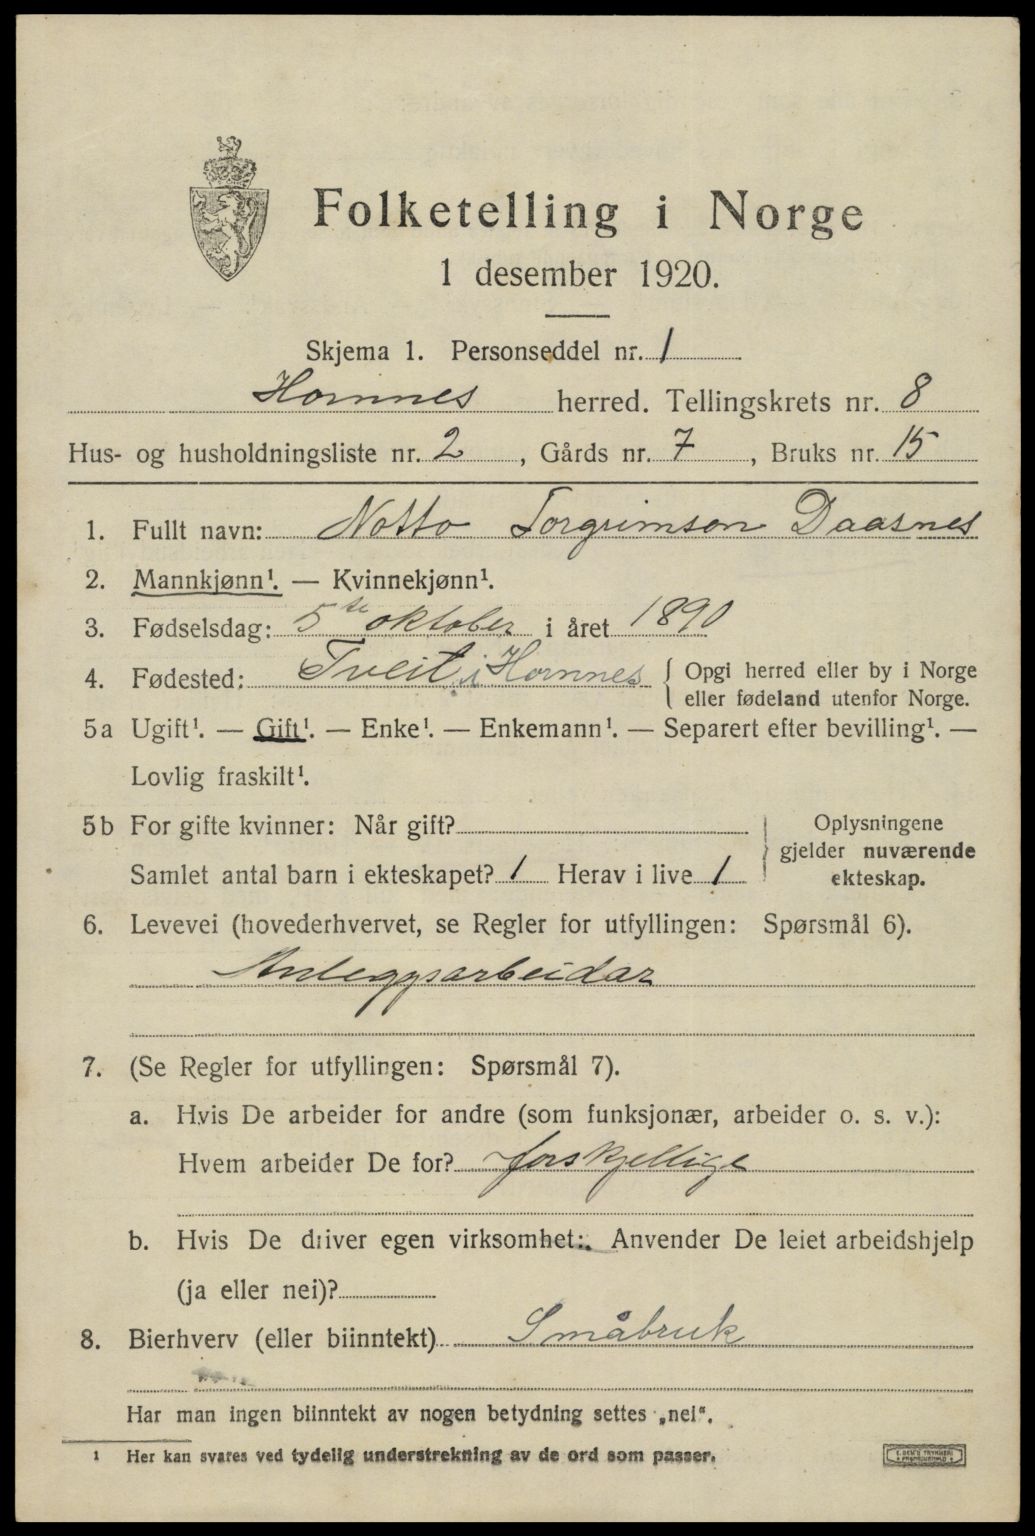 Folketelling i Norge
1 desember 1920.
Skjema 1. Personseddel nr. 1
Hornnes herred. Tellingskrets nr. 8
Hus- og husholdningsliste nr. 2, Gårds nr. 7, Bruks nr. 15
1. Fullt navn: Notto Torgrimson Daasnes
2. Mannkjønn¹. — Kvinnekjønn¹.
3. Fødselsdag: 5te oktober i året 1890
4. Fødested: Tveit i Hornnes { Opgi herred eller by i Norge
eller fødeland utenfor Norge.
5a Ugift¹. — Gift¹. — Enke¹. — Enkemann¹. — Separert efter bevilling¹. —
Lovlig fraskilt¹.
5b For gifte kvinner: Når gift?
Samlet antal barn i ekteskapet? 1 Herav i live 1
} Oplysningene
gjelder nuværende
ekteskap.
6. Levevei (hovederhvervet, se Regler for utfyllingen: Spørsmål 6).
Anleggsarbeidar
7. (Se Regler for utfyllingen: Spørsmål 7).
a. Hvis De arbeider for andre (som funksjonær, arbeider o. s. v.):
Hvem arbeider De for? forskjellige
b. Hvis De driver egen virksomhet: Anvender De leiet arbeidshjelp
(ja eller nei)?
8. Bierhverv (eller biinntekt) Småbruk
Har man ingen biinntekt av nogen betydning settes „nei".
¹ Her kan svares ved tydelig understrekning av de ord som passer.